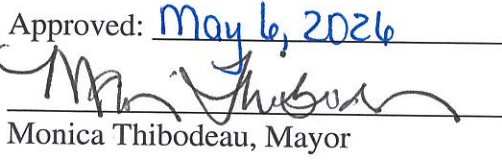 Approved: May 6, 2026
Monica Thibodeau
Monica Thibodeau, Mayor